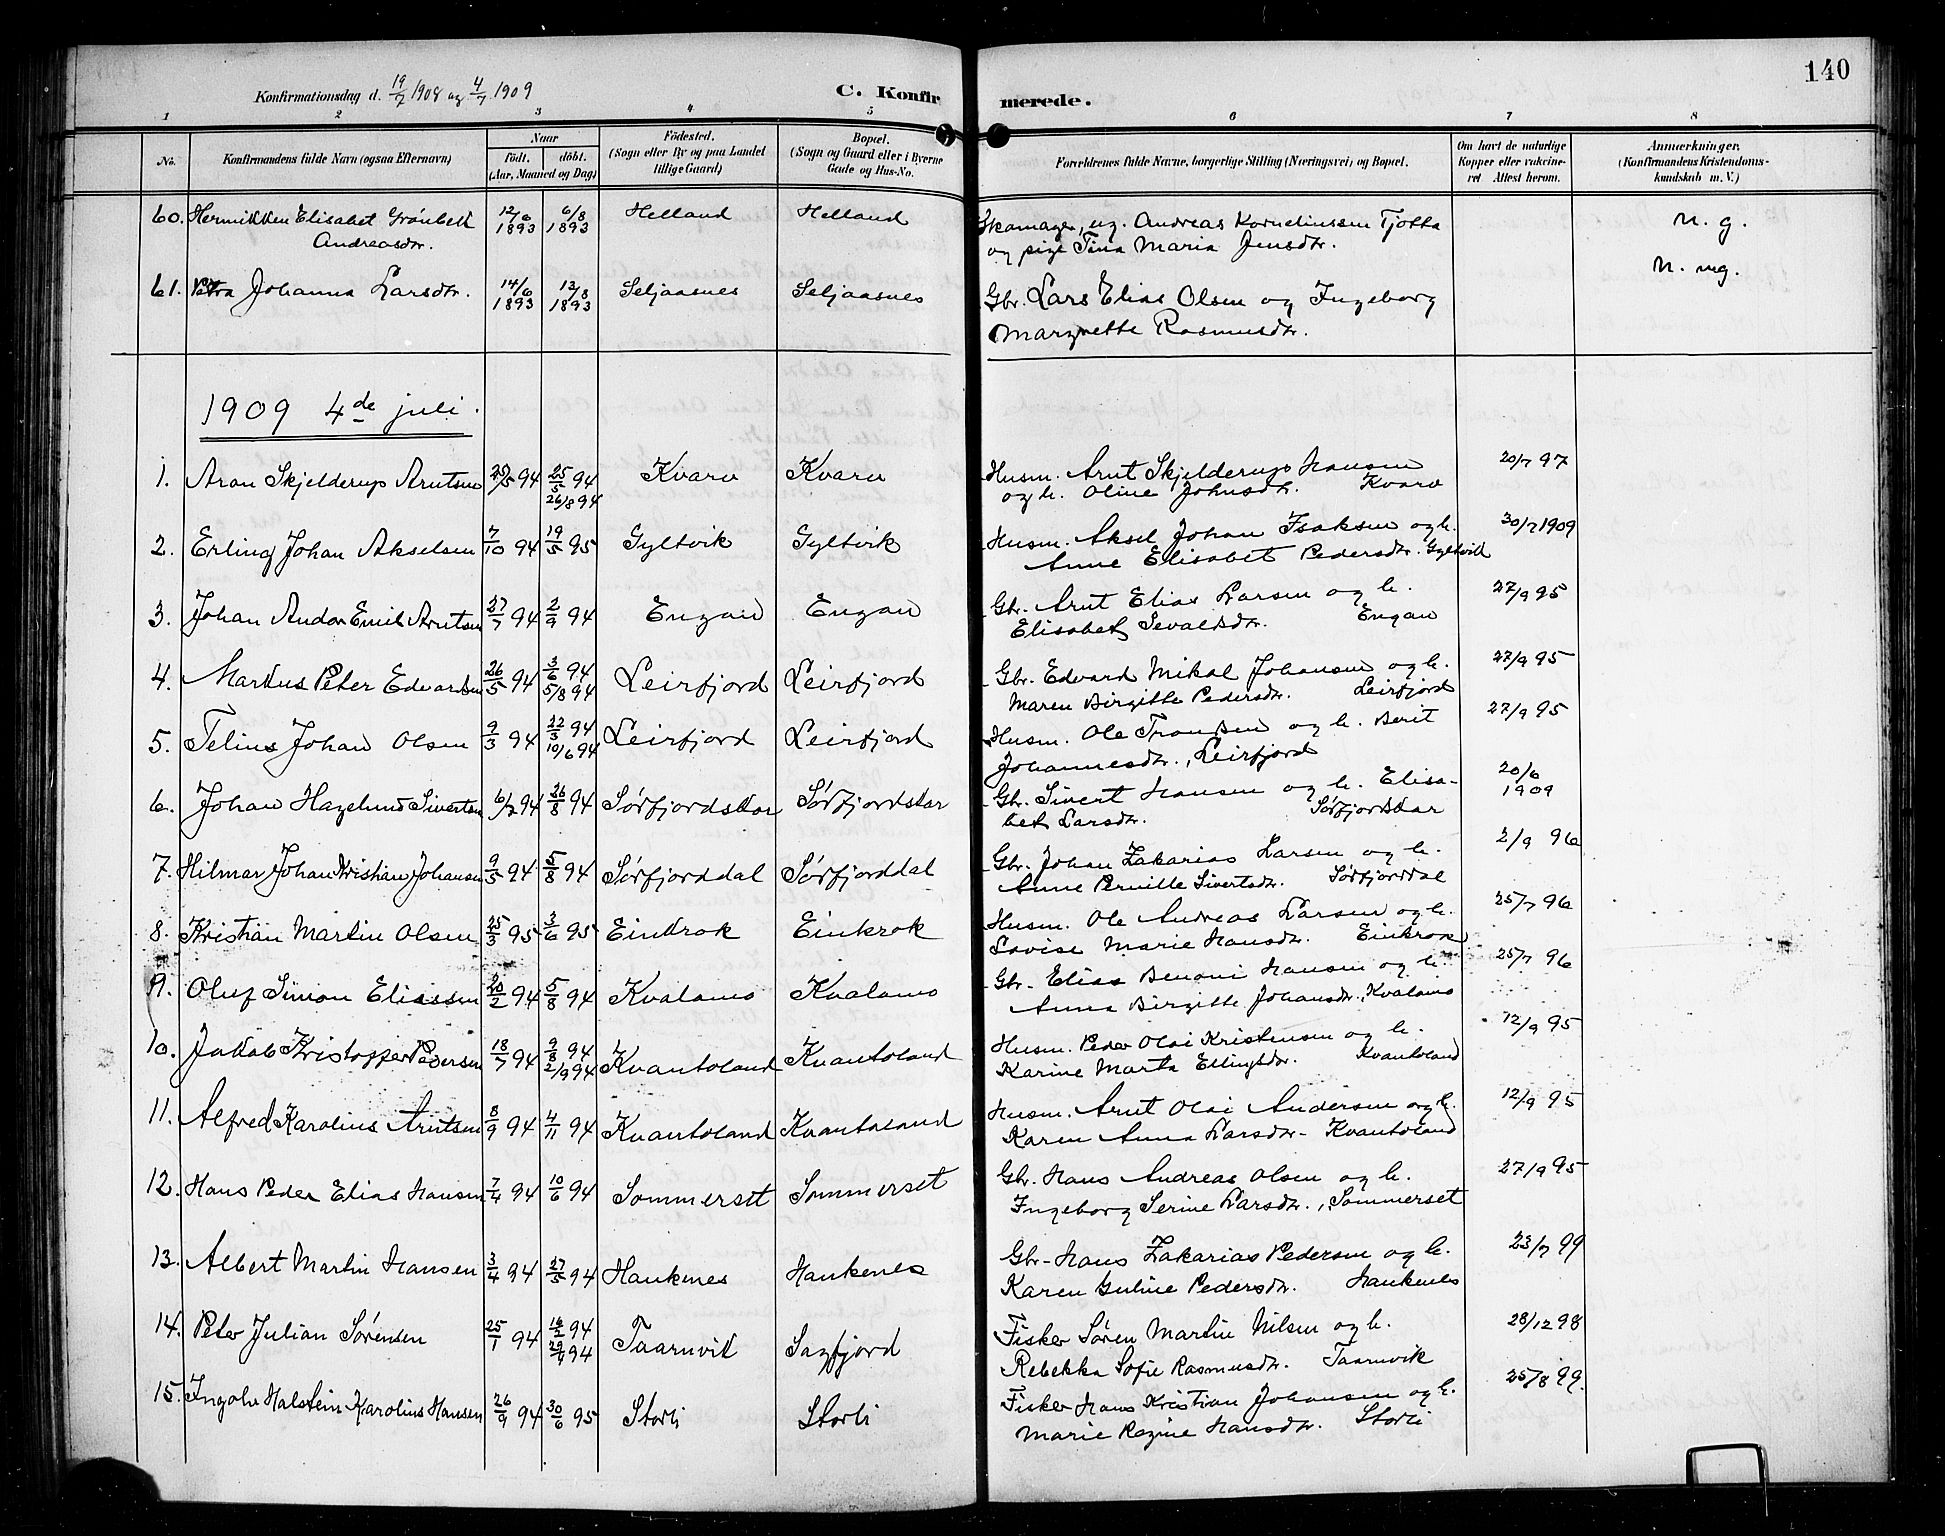 140
Konfirmationsdag d. 19/7 1908 og 4/7 1909
C. Konfirmerede.
1 2 3 4 5 6 7 8
No. Konfirmandens fulde Navn (ogsaa Efternavn) Naar födt. döbt. (Aar, Maaned og Dag) Födested. (Sogn eller By og paa Landet tillige Gaard) Bopæl. (Sogn og Gaard eller i Byerne Gade og Hus-No. Forældrenes fulde Navne, borgerlige Stilling (Næringsvei) og Bopæl. Om havt de naturlige Kopper eller vakcineret Attest herom. Anmærkninger. (Konfirmandens Kristendomskundskab m. V.)
60. Hermikken Elisabet Grønbek 12/6 1893 6/8 1893 Helland Helland Skomager, ug. Andreas Korneliussen Tjotta N. g.
Andreasdtr. og pige Tina Maria Jensdtr.
61. Petra Johanna Larsdtr. 14/6 1893 13/8 1893 Seljaasnes Seljaasnes Gbr. Lars Elias Olsen og Ingeborg N. mg.
Margrethe Rasmusdtr.
1909 4de juli.
1. Aron Skjelderup Arntsen 25/5 94 26/8 94 Kvarv Kvarv Husm. Arnt Skjelderup Hansen 20/7 97
og h. Oline Johnsdtr. Kvarv
2. Erling Johan Akselsen 7/10 94 19/5 95 Gyltvik Gyltvik Husm. Aksel Johan Isaksen og h. 30/7 1909
Anne Elisabet Pedersdtr. Gyltvik
3. Johan Andor Emil Arntsen 27/7 94 2/9 94 Engan Engan Gbr. Arnt Elias Larsen og h. 27/9 95
Elisabet Sevaldsdtr. Engan
4. Markus Peter Edvardsen 26/5 94 3/6 94 5/8 94 Leirfjord Leirfjord Gbr. Edvard Mikal Johansen og h. 27/9 95
Maren Birgitte Pedersdtr. Leirfjord
5. Telius Johan Olsen 9/3 94 22/3 94 10/6 94 Leirfjord Leirfjord Husm. Ole Trondsen og h. Berit 27/9 95
Johannesdtr., Leirfjord
6. Johan Hagelund Sivertsen 6/7 94 26/8 94 Sørfjordskar Sørfjordskar Gbr. Sivert Hansen og h. Elisa- 20/6 1909
bet Larsdtr. Sørfjordskar
7. Hilmar Johan Kristian Johansen 9/5 94 5/8 94 Sørfjorddal Sørfjorddal Gbr. Johan Zakarias Larsen og h. 2/9 96
Anne Pernille Sivertsdtr. Sørfjorddal
8. Kristian Martin Olsen 25/3 95 3/6 95 Einkrok Einkrok Husm. Ole Andreas Larsen og h. 25/7 96
Lovise Marie Hansdtr. Einkrok
9. Oluf Simon Eliassen 20/2 94 5/8 94 Kvalamo Kvalamo Gbr. Elias Benoni Hansen og h. 25/7 96
Anna Birgitte Johansdtr., Kvalamo
10. Jakob Kristoffer Pedersen 18/7 94 9/8 94 2/9 94 Kvantoland Kvantoland Husm. Peder Olai Kristensen og h. 12/9 95
Karine Marta Ellingsdtr. Kvantoland
11. Alfred Karolius Arntsen 8/9 94 4/11 94 Kvantoland Kvantoland Husm. Arnt Olai Andersen og h. 12/9 95
Karen Anna Larsdtr- Kvantoland
12. Hans Peder Elias Hansen 7/4 94 10/6 94 Sommerset Sommerset Gbr. Hans Andreas Olsen og h. 27/9 95
Ingeborg Serine Larsdtr., Sommerset
13. Albert Martin Hansen 3/4 94 27/5 94 Haukenes Haukenes Gbr- Hans Zakarias Pedersen og h. 23/7 99
Karen Guline Pedersdtr. Haukenes
14. Peter Julian Sørensen 25/1 94 16/2 94 29/4 94 Taarnvik Sagfjord Fisker Søren Martin Nilsen og h. 28/12 98
Rebekka Sofie Rasmusdtr. Taarnvik
15. Ingolv Halstein Karolius Hansen 26/9 94 30/6 95 Storli Storli Fisker Hans Kristian Johansen og h. 25/8 99.
Marie Regine Hansdtr. Storli